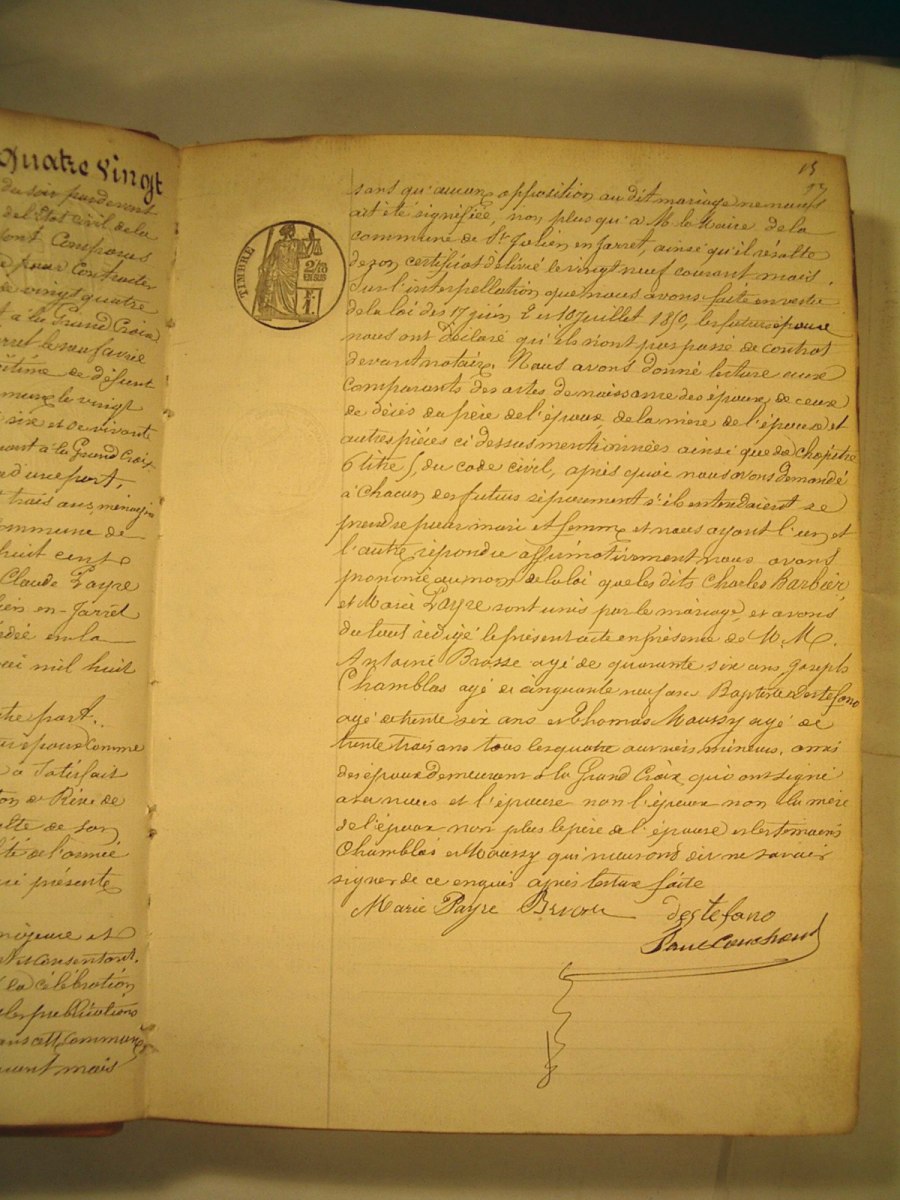 Quatre Vingt
du soir par devant
de l'Etat Civil de la
sont Comparus
pour Contracter
de vingt quatre
à la Grand Croix
légitime de défunt
le vingt
six et de vivante
à la Grand Croix
d'une part,
trois ans, ménagère
commune de
huit cent
Claude Payre
en-Jarret
décédée en la
mil huit
autre part.
époux Comme
a Satisfait
de Rive de
de son
de l'armée
présente
majeure et
et consentant.
la célébration
les publications
commune
courant mois
15
sans qu'aucune opposition au dit mariage ne nous
ait été signifiée, non plus qu'à M. le Maire de la
commune de St Julien en Jarret, ainsi qu'il résulte
de son certificat délivré le vingt neuf courant mois
Sur l'interpellation que nous avons faite en vertu
de la loi des 17 juin 2 et 10 Juillet 1850, les futurs époux
nous ont déclaré qu'ils n'ont pas passé de contrat
devant notaire. Nous avons donné lecture aux
comparants des actes de naissance des époux, de ceux
de décès du père de l'époux, de la mère de l'épouse et
autres pièces ci dessus mentionnées ainsi que du Chapitre
6 titre 5, du code civil, après quoi nous avons demandé
à chacun des futurs séparement s'ils entendaient se
prendre pour mari et femme et nous ayant l'un et
l'autre répondu affirmativement nous avons
prononcé au nom de la loi que les dits Charles Barbier
et Marie Payre sont unis par le mariage, et avons
du tout rédigé le présent acte en présence de M.M.
Antoine Brosse agé de quarante six ans Joseph
Chamblas agé de cinquante neuf ans Baptiste Destefano
agé de trente six ans et Thomas Maussy agé de
trente trois ans tous les quatre ouvriers mineurs, amis
des époux Demeurant à la Grand Croix qui ont signé
avec nous et l'épouse non l'époux non la mère
de l'époux non plus le père de l'épouse et les temoins
Chamblas et Maussy qui nous ont dit ne savoir
signer de ce enquis après lecture faite
Marie Payre Brosse destefano
TIMBRE
2/10
EN SUS
1 F.